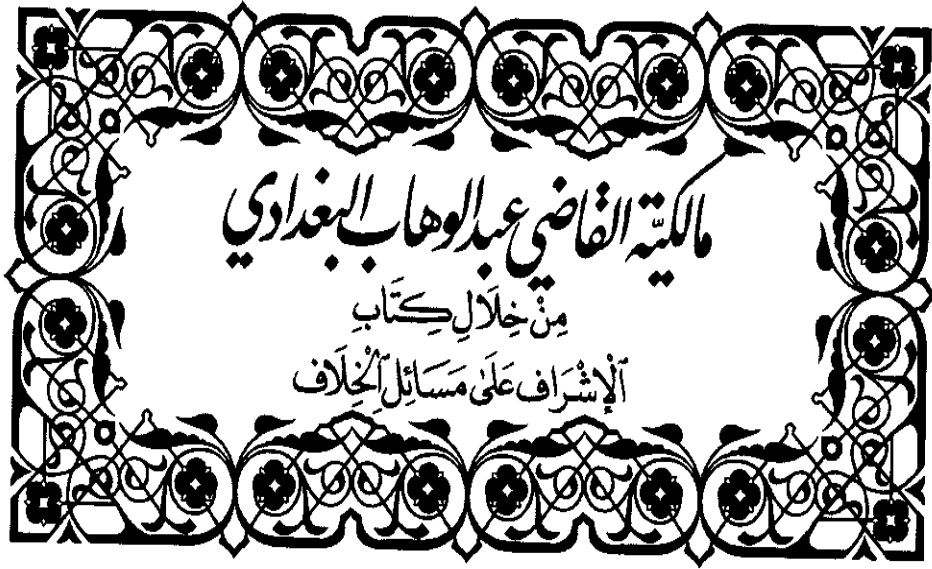 مالكيَّة القاضي عبد الوهاب البغدادي
مِنْ خِلَالِ كِتَابِ
ٱلْإِشْرَافِ عَلَىٰ مَسَائِلِ ٱلْخِلَافِ